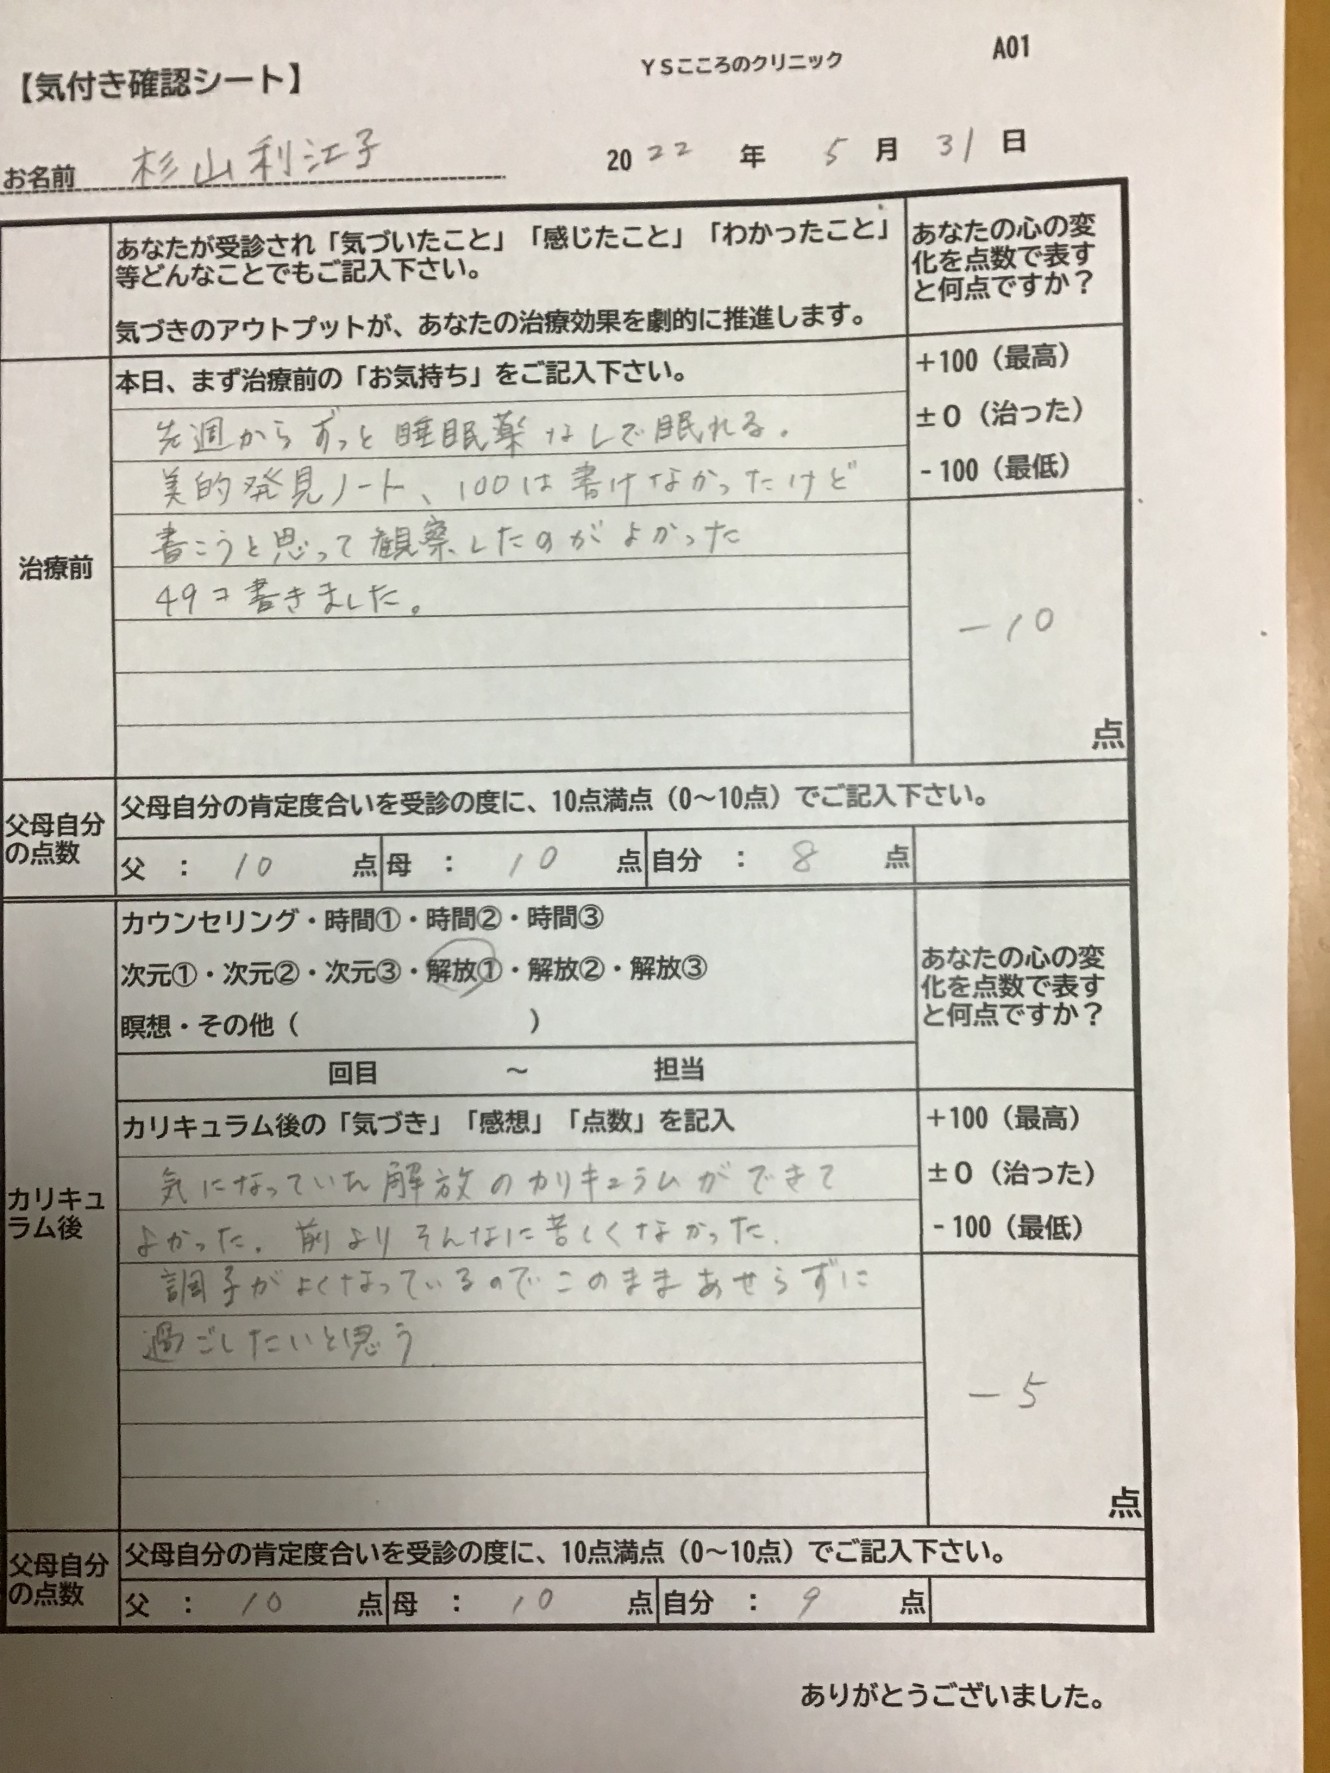 【気付き確認シート】
YSこころのクリニック
A01
お名前 杉山利江子
2022年 5月 31日
あなたが受診され「気づいたこと」「感じたこと」「わかったこと」
等どんなことでもご記入下さい。
気づきのアウトプットが、あなたの治療効果を劇的に推進します。
あなたの心の変
化を点数で表す
と何点ですか？
治療前
本日、まず治療前の「お気持ち」をご記入下さい。
先週からずっと睡眠薬なしで眠れる。
美的発見ノート、100は書けなかったけど
書こうと思って観察したのがよかった
49コ書きました。
+100（最高）
±0（治った）
-100（最低）
-10
点
父母自分
の点数
父母自分の肯定度合いを受診の度に、10点満点（0～10点）でご記入下さい。
父 ： 10 点 母 ： 10 点 自分 ： 8 点
カリキュ
ラム後
カウンセリング・時間①・時間②・時間③
次元①・次元②・次元③・解放①・解放②・解放③
瞑想・その他（ ）
回目 ～ 担当
あなたの心の変
化を点数で表す
と何点ですか？
カリキュラム後の「気づき」「感想」「点数」を記入
気になっていた解放のカリキュラムができて
よかった。前よりそんなに苦しくなかった。
調子がよくなっているのでこのままあせらずに
過ごしたいと思う
+100（最高）
±0（治った）
-100（最低）
-5
点
父母自分
の点数
父母自分の肯定度合いを受診の度に、10点満点（0～10点）でご記入下さい。
父 ： 10 点 母 ： 10 点 自分 ： 9 点
ありがとうございました。